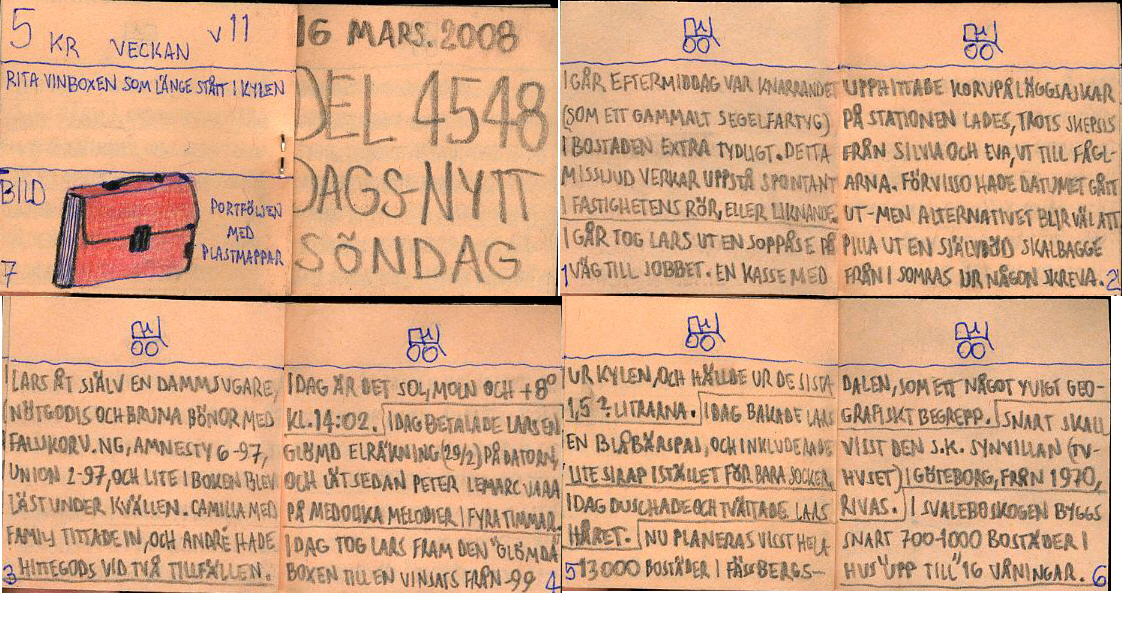 5 KR VECKAN V 11
RITA VINBOXEN SOM LÄNGE STÅTT I KYLEN
BILD
PORTFÖLJEN
MED
PLASTMAPPAR
7
16 MARS. 2008
DEL 4548
DAGS-NYTT
SÖNDAG
I GÅR EFTERMIDDAG VAR KNARRANDET
(SOM ETT GAMMALT SEGELFARTYG)
I BOSTADEN EXTRA TYDLIGT. DETTA
MISSLJUD VERKAR UPPSTÅ SPONTANT
I FASTIGHETENS RÖR, ELLER LIKNANDE.
I GÅR TOG LARS UT EN SOPPÅSE PÅ
VÄG TILL JOBBET. EN KASSE MED
1
UPPHITTADE KORVPÅLÄGGSASKAR
PÅ STATIONEN LADES, TROTS SKEPSIS
FRÅN SILVIA OCH EVA, UT TILL FÅGL-
ARNA. FÖRVISSO HADE DATUMET GÅTT
UT-MEN ALTERNATIVET BLIR VÄL ATT
PILLA UT EN SJÄLVDÖD SKALBAGGE
FRÅN I SOMRAS UR NÅGON SKREVA.
2
LARS ÅT SJÄLV EN DAMMSUGARE,
NÖTGODIS OCH BRUNA BÖNOR MED
FALUKORV. NG, AMNESTY 6-97,
UNION 2-97, OCH LITE I BOKEN BLEV
LÄST UNDER KVÄLLEN. CAMILLA MED
FAMILJ TITTADE IN, OCH ANDRÉ HADE
HITTEGODS VID TVÅ TILLFÄLLEN.
3
IDAG ÄR DET SOL, MOLN OCH +8°
KL. 14:02. IDAG BETALADE LARS EN
GLÖMD ELRÄKNING (29/2) PÅ DATORN,
OCH LÄT SEDAN PETER LEMARC VARA
PÅ MEDOCKA MELODIER I FYRA TIMMAR.
IDAG TOG LARS FRAM DEN "GLÖMDA"
BOXEN TILL EN VINSATS FRÅN -99
4
UR KYLEN, OCH HÄLLDE UR DE SISTA
1,5 ? LITRARNA. IDAG BAKADE LARS
EN BLÅBÄRSPAJ, OCH INKLUDERADE
LITE SIRAP ISTÄLLET FÖR BARA SOCKER.
IDAG DUSCHADE OCH TVÄTTADE LARS
HÅRET. NU PLANERAS VISST HELA
13 000 BOSTÄDER I FÄSSBERGS-
5
DALEN, SOM ETT NÅGOT YVIGT GEO-
GRAFISKT BEGREPP. SNART SKALL
VISST DEN S.K. SYNVILLAN (TV-
HUSET) I GÖTEBORG, FRÅN 1970,
RIVAS. I SVALEBOSKOGEN BYGGS
SNART 700-1000 BOSTÄDER I
HUS "UPP TILL" 16 VÅNINGAR.
6